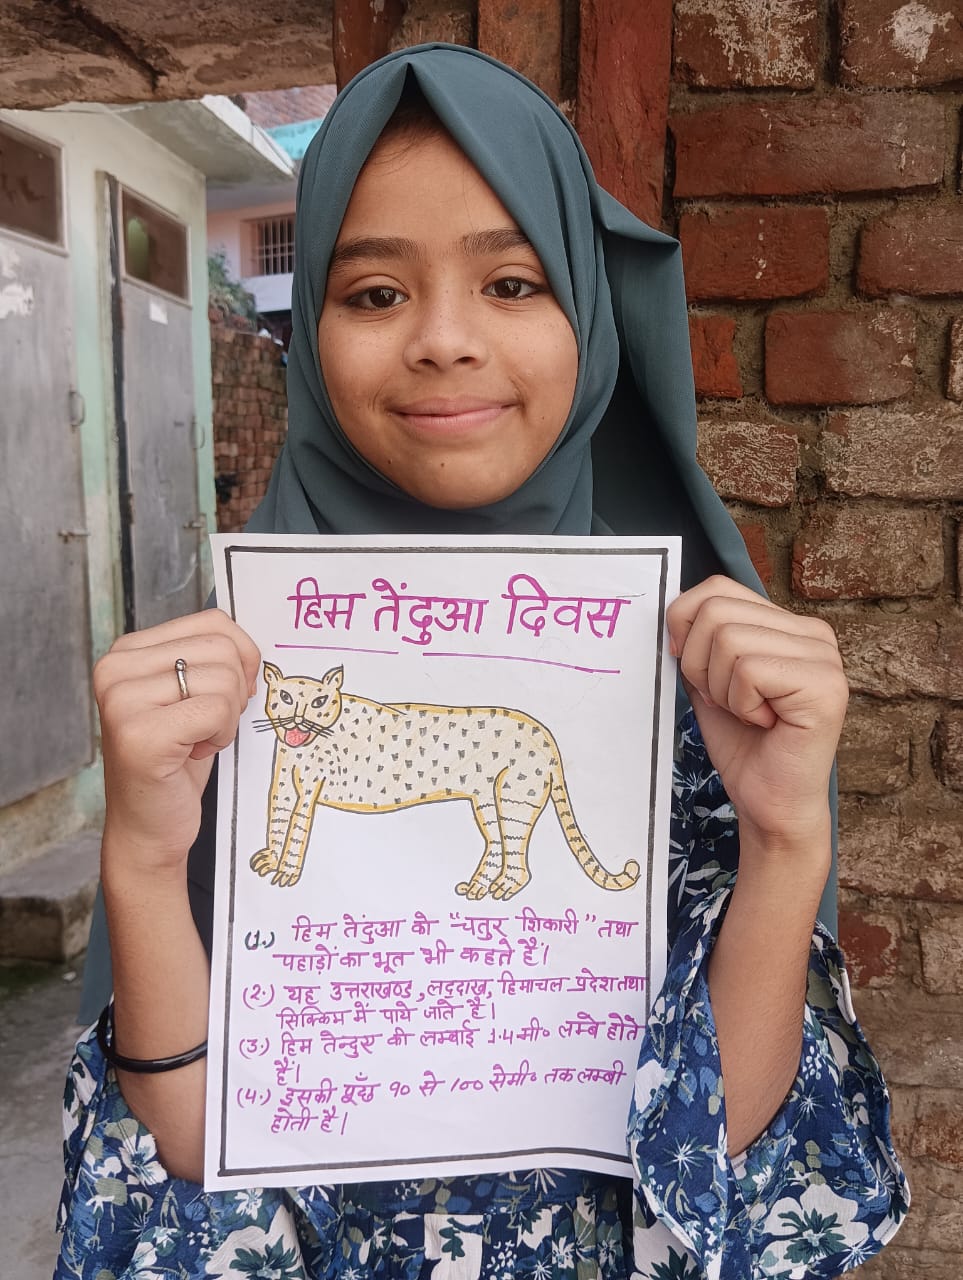 हिम तेंदुआ दिवस
(1.) हिम तेंदुआ को "चतुर शिकारी" तथा
पहाड़ों का भूत भी कहते हैं।
(2.) यह उत्तराखण्ड, लद्दाख, हिमाचल प्रदेश तथा
सिक्किम में पाये जाते है।
(3.) हिम तेन्दुए की लम्बाई 1.4 मी० लम्बे होते
हैं।
(4.) इसकी पूँछ ९० से 100 सेमी० तक लम्बी
होती है।